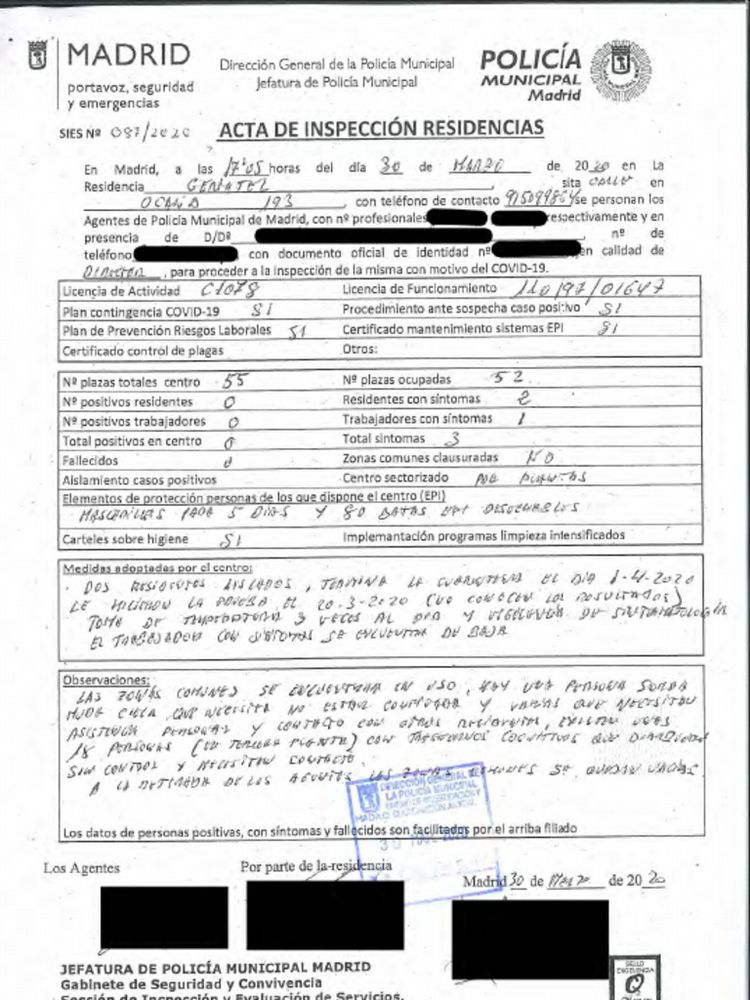 MADRID
portavoz, seguridad
y emergencias
Dirección General de la Policía Municipal
Jefatura de Policía Municipal
POLICÍA
MUNICIPAL
Madrid
SIES Nº 087/2020 ACTA DE INSPECCIÓN RESIDENCIAS
En Madrid, a las 17'05 horas del día 30 de MARZO de 2020 en La
Residencia GERIATEL, sita CALLE en
OCAÑA 193, con teléfono de contacto 915099864 se personan los
Agentes de Policía Municipal de Madrid, con nº profesionales respectivamente y en
presencia de D/Dª nº de
teléfono con documento oficial de identidad nº en calidad de
DIRECTOR, para proceder a la inspección de la misma con motivo del COVID-19.
Licencia de Actividad C1078 Licencia de Funcionamiento 110197/01647
Plan contingencia COVID-19 SI Procedimiento ante sospecha caso positivo SI
Plan de Prevención Riesgos Laborales SI Certificado mantenimiento sistemas EPI SI
Certificado control de plagas Otros:
Nº plazas totales centro 55 Nº plazas ocupadas 52
Nº positivos residentes 0 Residentes con síntomas 2
Nº positivos trabajadores 0 Trabajadores con síntomas 1
Total positivos en centro 0 Total sintomas 3
Fallecidos 0 Zonas comunes clausuradas NO
Aislamiento casos positivos Centro sectorizado POR PLANTAS
Elementos de protección personas de los que dispone el centro (EPI)
MASCARILLAS PARA 5 DIAS Y 80 BATAS DESECHABLES
Carteles sobre higiene SI Implementación programas limpieza intensificados
Medidas adoptadas por el centro:
· DOS RESIDENTES AISLADOS, TERMINA LA CUARENTENA EL DIA 1-4-2020
LE HICIERON LA PRUEBA EL 20-3-2020 (NO CONOCEN LOS RESULTADOS)
TOMA DE TEMPERATURA 3 VECES AL DIA Y VIGILANCIA DE SINTOMATOLOGIA
EL TRABAJADOR CON SINTOMAS SE ENCUENTRA DE BAJA
Observaciones:
LAS ZONAS COMUNES SE ENCUENTRAN EN USO, HAY UNA PERSONA SORDA
MUDA CIEGA QUE NECESITA NO ESTAR CONFINADA Y VARIAS QUE NECESITAN
ASISTENCIA PERSONAL Y CONTACTO CON OTROS RESIDENTES, EXISTEN UNAS
18 PERSONAS (EN TERCERA PLANTA) CON TRASTORNOS COGNITIVOS QUE DEAMBULAN
SIN CONTROL Y NECESITAN CONTACTO.
A LA RETIRADA DE LOS AGENTES LAS ZONAS COMUNES SE QUEDAN VACIAS
DIRECCIÓN GENERAL DE
LA POLICÍA MUNICIPAL
30
Los datos de personas positivas, con síntomas y fallecidos son facilitados por el arriba filiado
Los Agentes Por parte de la residencia
Madrid 30 de MARZO de 2020
JEFATURA DE POLICÍA MUNICIPAL MADRID
Gabinete de Seguridad y Convivencia
Sección de Inspección y Evaluación de Servicios.